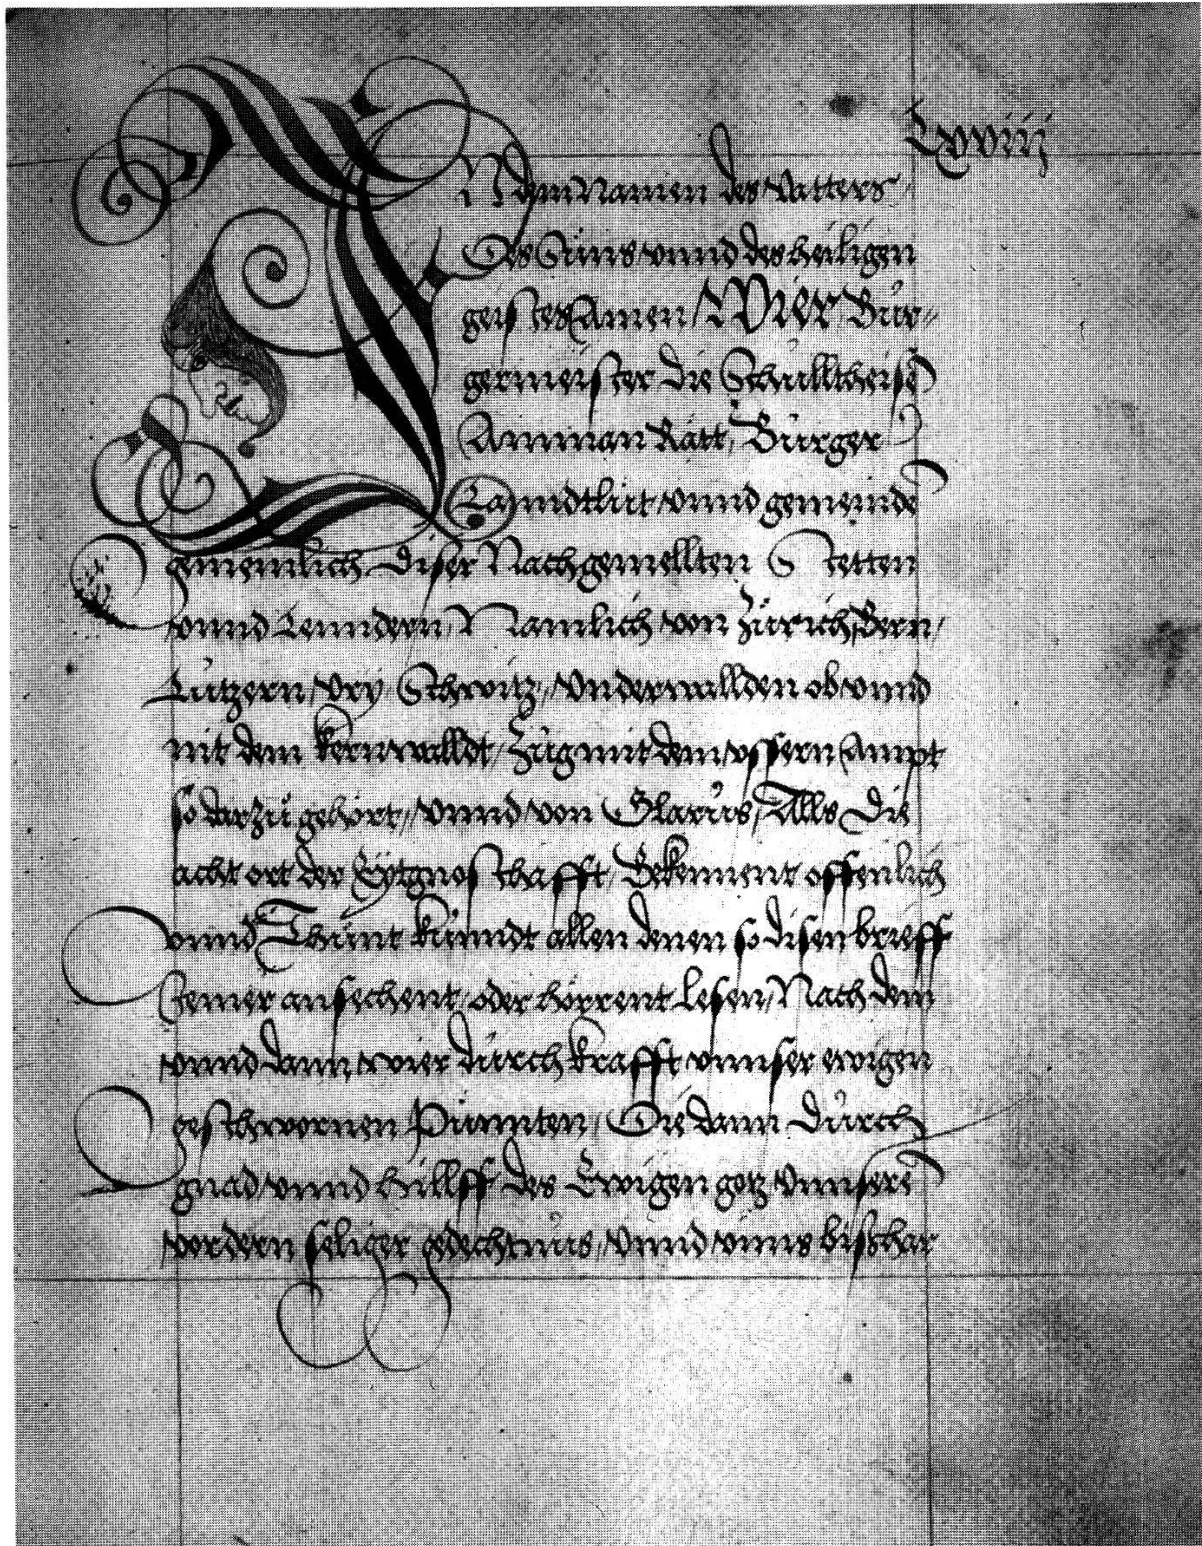 Lxviij
IN dem Namen des Vatters /
Des Suns vnnd des heiligen
geistes Amen / Wier Bur-
germeister die Schulltheisse
Amman Rätt / Burger
Lanndtlüt vnnd gemeinde
gemeinlich diser Nachgemellten Stetten
vnnd Lenndern / Namlich von Zürich, Bern /
Lutzern / Vry / Schwitz / Vnderwallden ob vnnd
nit dem kernwalldt / Zug mit dem vssern Ampt
so darzu gehört / vnnd von Glarus / Alls die
acht ort der Eytgnosschafft / Bekennent offenlich
vnnd Thunt kunndt allen denen so disen brieff
Jemer ansechent / oder hörrent lesen / Nach dem
vnnd dann wier durch krafft vnnser ewigen
geschwornen Pünnten / Die dann durch
gnad vnnd hillff des Ewigen gotz vnnsere
vordern seliger gedechtnus / vnnd vnns bishar